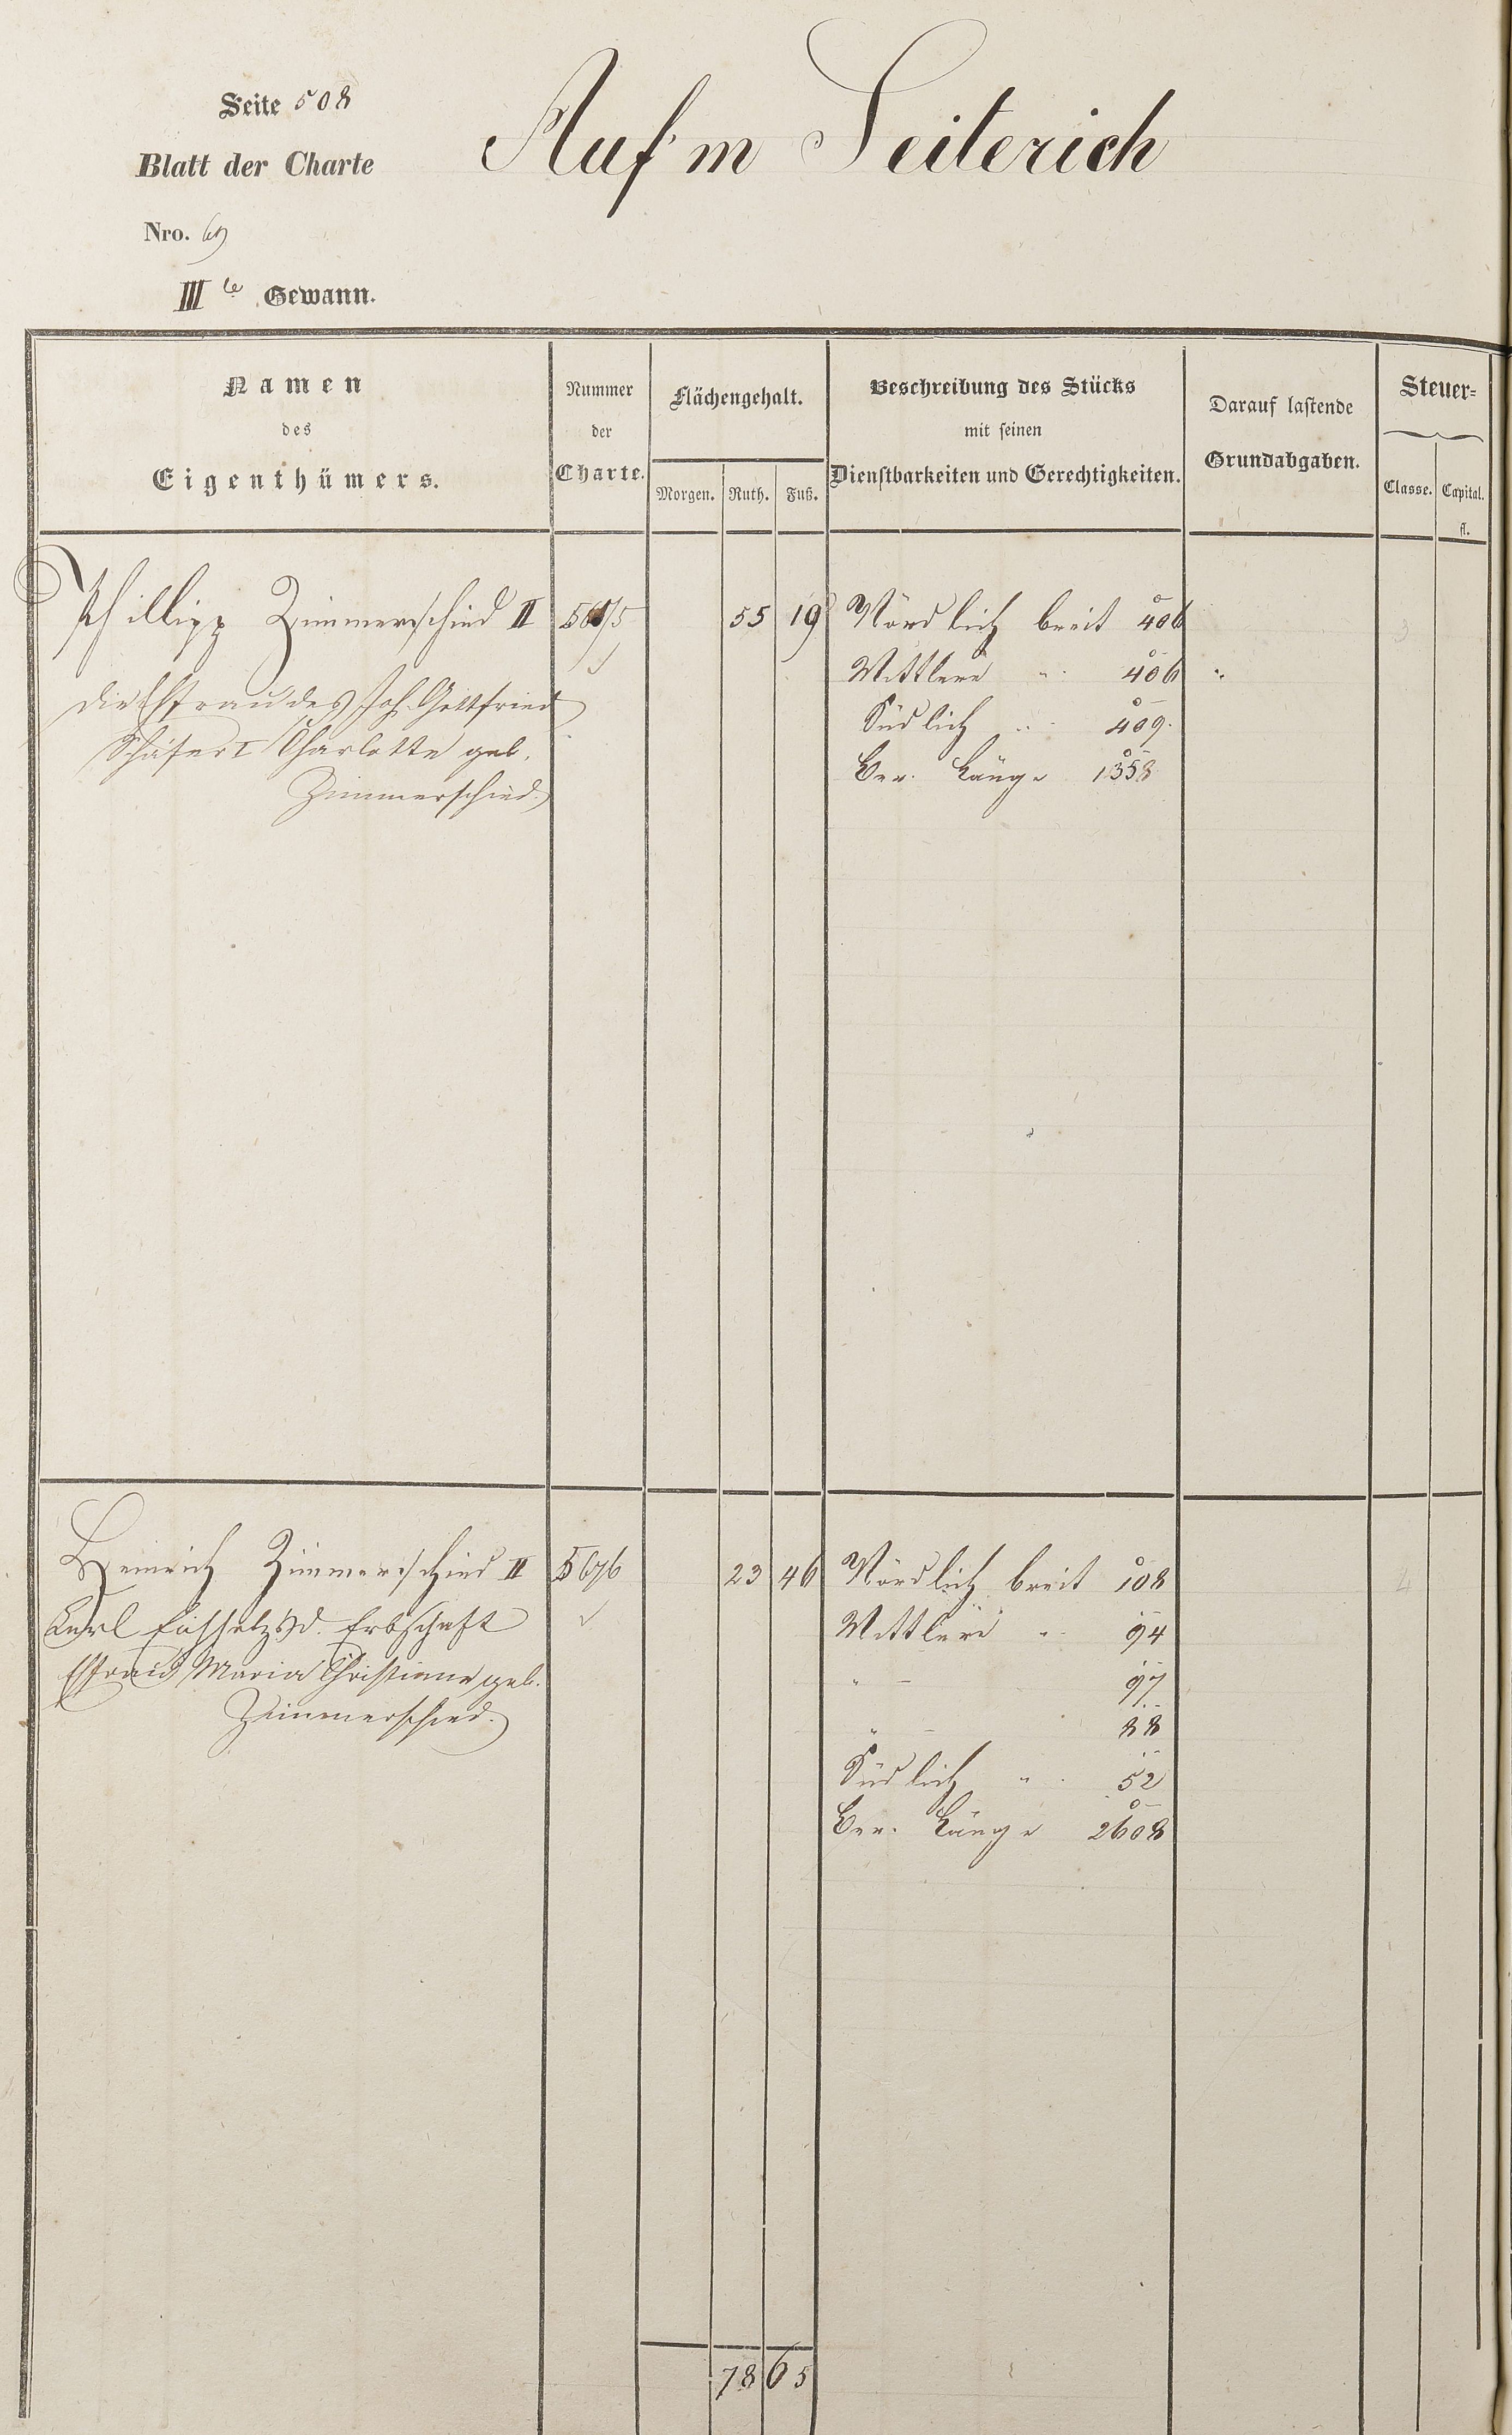 Seite 508
Blatt der Charte
Nro. 69
IIIte Gewann.
Auf'm Seiterich
Namen
des
Eigenthümers.
Nummer
der
Charte.
Flächengehalt.
Morgen. Ruth. Fuß.
Beschreibung des Stücks
mit seinen
Dienstbarkeiten und Gerechtigkeiten.
Darauf lastende
Grundabgaben.
Steuer=
Classe. Capital.
fl.
Phillipp Zimmerschied II 5675 55 19 Nördlich breit 406 3
Mittlere " 406 "
die Ehefrau des Joh. Gottfried
Südlich " 409.
Schäfer I Charlotte geb.
Ber. Länge 1358
Zimmerschied.
Heinrich Zimmerschied II 5676 23 46 Nördlich breit 108 4
Karl d. Erbschaft
Mittlere " 94
Ehefrau Maria Christiane geb.
" 97
Zimmerschied.
" 88
Südlich " 52
Ber. Länge 2608
78 65